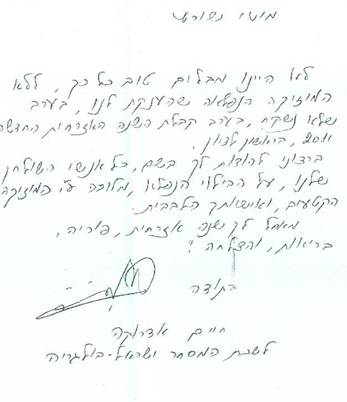 מוטי נשורש
לא היינו מבלים טוב כל כך, ללא
המוזיקה הנפלאה שהענקת לנו, בערב
שלא נשקח, בערב קבלת השנה האזרחית החדשה
2011, בראשון לציון.
ברצוני להודות לך בשם, כל אנשי השולחן
שלנו, על הבילוי הנפלא, מלווה ע״י המוזיקה
הקטעים, ואישיותך הלבבית.
מאחל לך שנה אזרחית, פוריה,
בריאות, והצלחה!
בתודה
חיים
לשכת המסחר ישראל-בולגריה